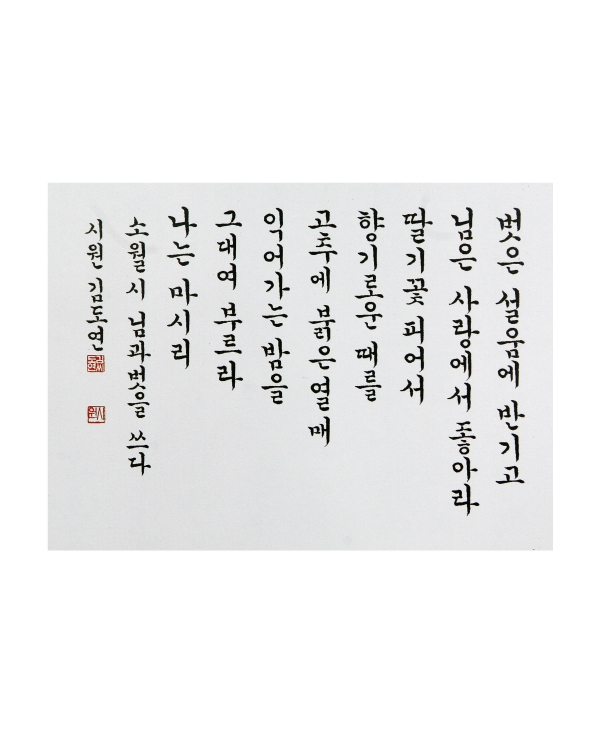 벗은 설움에 반기고
님은 사랑에서 좋아라
딸기꽃 피어서
향기로운 때를
고추에 붉은 열매
익어가는 밤을
그대여 부르라
나는 마시리
소월시 님과벗을 쓰다
시원 김도연